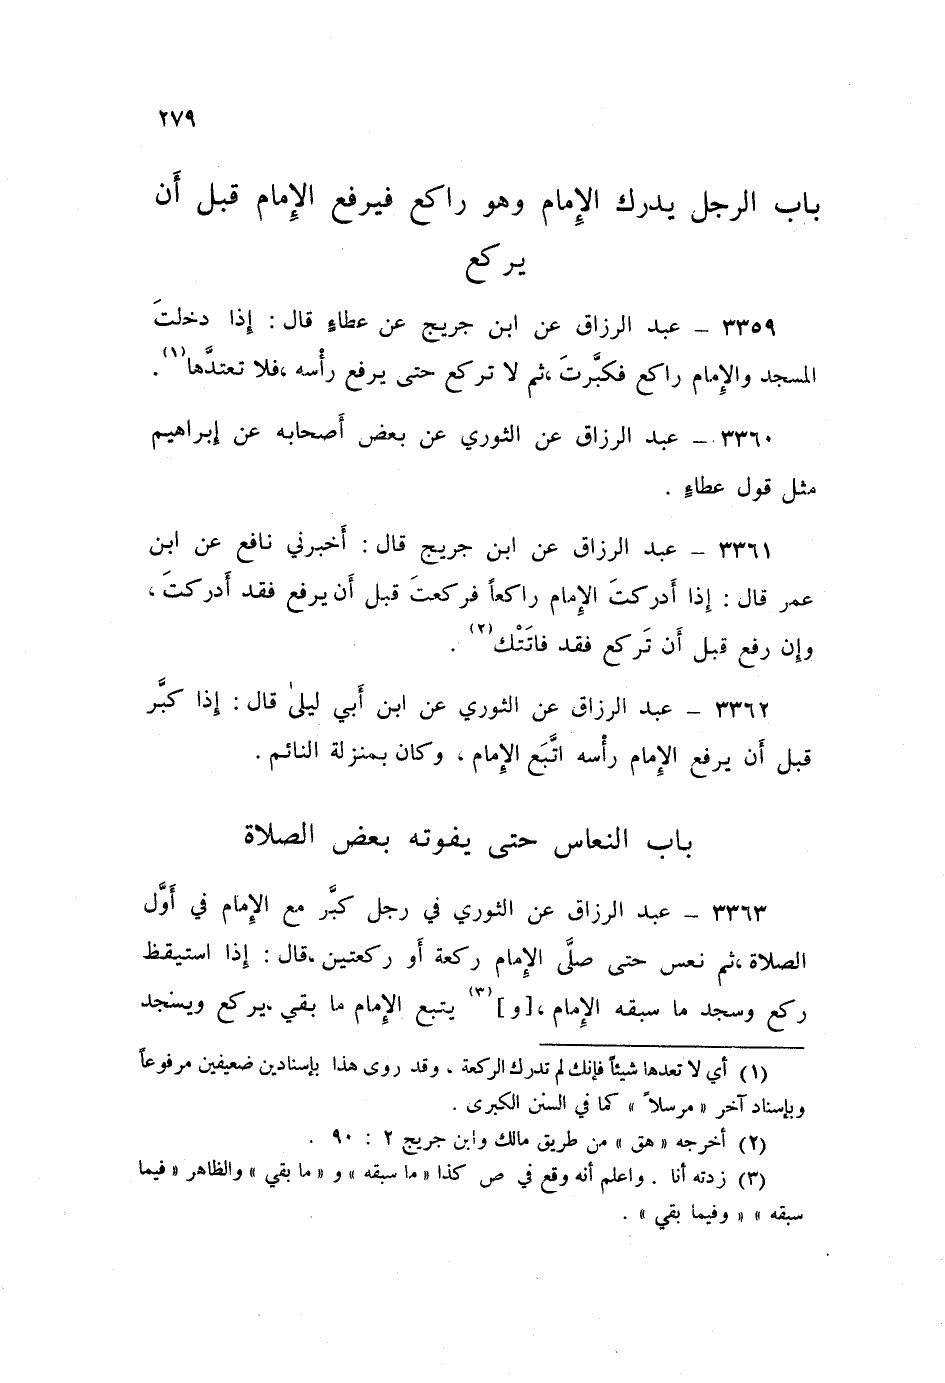 ٢٧٩
باب الرجل يدرك الإِمام وهو راكع فيرفع الإِمام قبل أَن
يركع
٣٣٥٩ – عبد الرزاق عن ابن جريج عن عطاءٍ قال : إِذا دخلتَ
المسجد والإِمام راكع فكبَّرتَ ،ثم لا تركع حتى يرفع رأْسه ،فلا تعتدَّها(١) .
٣٣٦٠ – عبد الرزاق عن الثوري عن بعض أَصحابه عن إبراهيم
مثل قول عطاءٍ .
٣٣٦١ – عبد الرزاق عن ابن جريج قال : أَخبرني نافع عن ابن
عمر قال : إِذا أَدركتَ الإِمام راكعاً فركعتَ قبل أَن يرفع فقد أَدركتَ ،
وإِن رفع قبل أَن تَركع فقد فاتَتْك(٢) .
٣٣٦٢ – عبد الرزاق عن الثوري عن ابن أَبي ليلىٰ قال : إِذا كبَّر
قبل أَن يرفع الإِمام رأْسه اتَّبَع الإِمام ، وكان بمنزلة النائم .
باب النعاس حتى يفوته بعض الصلاة
٣٣٦٣ – عبد الرزاق عن الثوري في رجل كبَّر مع الإِمام في أَوَّل
الصلاة ،ثم نعس حتى صلَّى الإِمام ركعة أَو ركعتين ،قال : إِذا استيقظ
ركع وسجد ما سبقه الإِمام ،[و](٣) يتبع الإِمام ما بقي ،يركع ويسجد
(١) أي لا تعدها شيئاً فإنك لم تدرك الركعة . وقد روى هذا بإسنادين ضعيفين مرفوعاً
وبإسناد آخر « مرسلاً » كما في السنن الكبرى .
(٢) أخرجه « هق » من طريق مالك وابن جريج ٢ : ٩٠ .
(٣) زدته أنا . واعلم أنه وقع في ص كذا « ما سبقه » و « ما بقي » والظاهر « فيما
سبقه » « وفيما بقي » .